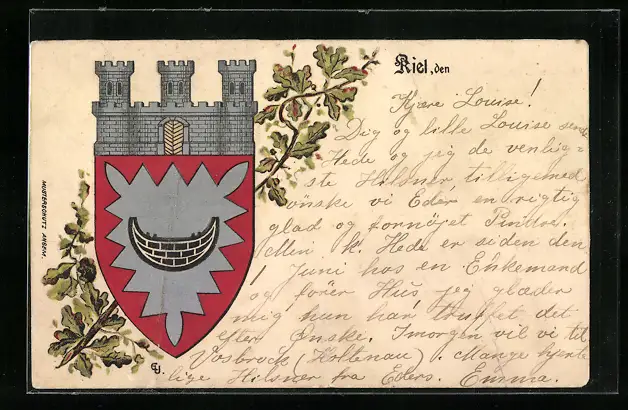 Kiel, den
Kjære Louise!
Dig og lille Louise sende
Hede og jeg de venlig=
ste Hilsner, tilligemed
ønske vi Eder en rigtig
glad og fornøjet Pintse.
Min k. Hede er siden den
1 Juni hos en Enkemand
og fører Hus, jeg glæder
mig hun har truffet det
efter Ønske. Imorgen vil vi til
Vosbrock (Holtenau). Mange hjerte
lige Hilsner fra Eders. Emma.
MUSTERSCHUTZ ANGEM.